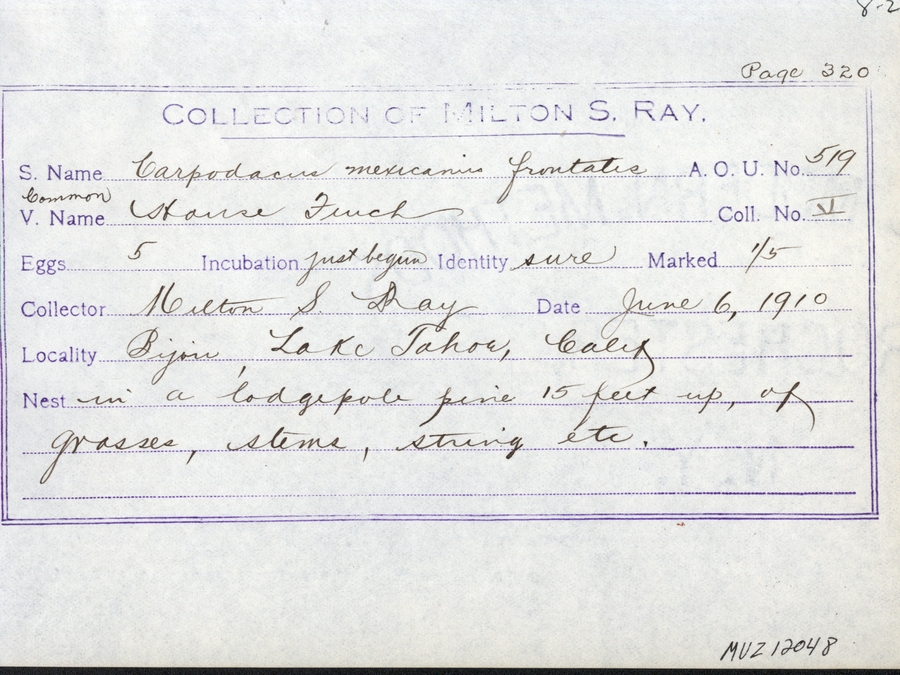 8-2
Page 320
COLLECTION OF MILTON S. RAY.
S. Name Carpodacus mexicanus frontalis A. O. U. No. 519
Common
V. Name House Finch Coll. No. V
Eggs 5 Incubation just begun Identity sure Marked 1/5
Collector Milton S Ray Date June 6, 1910
Locality Bijou, Lake Tahoe, Calif
Nest in a lodgepole pine 15 feet up, of
grasses, stems, string etc.
MVZ 12048